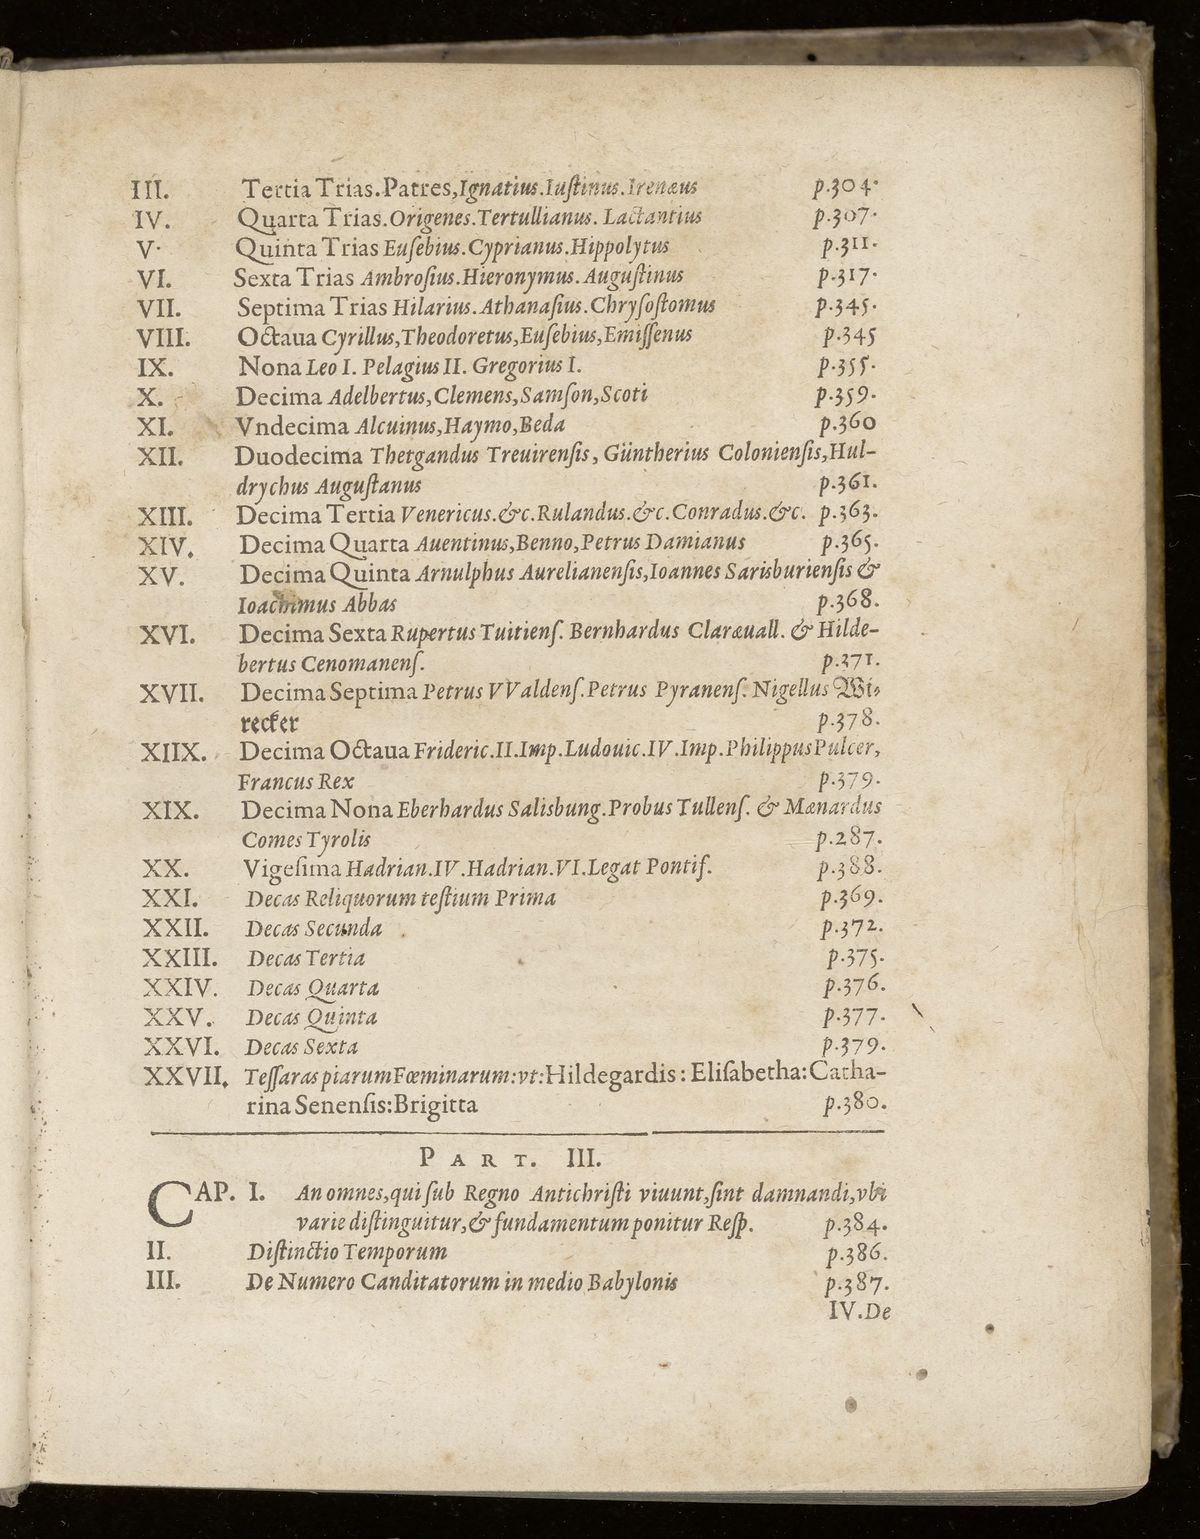 III. Tertia Trias.Patres,Ignatius.Iuſtinus.Irenæus p.304.
IV. Quarta Trias.Origenes.Tertullianus. Lactantius p.307.
V. Quinta Trias Euſebius.Cyprianus.Hippolytus p.311.
VI. Sexta Trias Ambroſius.Hieronymus.Auguſtinus p.317.
VII. Septima Trias Hilarius.Athanaſius.Chryſoſtomus p.345.
VIII. Octaua Cyrillus,Theodoretus,Euſebius,Emiſſenus p.345
IX. Nona Leo I. Pelagius II. Gregorius I. p.355.
X. Decima Adelbertus,Clemens,Samſon,Scoti p.359.
XI. Vndecima Alcuinus,Haymo,Beda p.360
XII. Duodecima Thetgandus Treuirenſis, Güntherius Colonienſis,Hul-
drychus Auguſtanus p.361.
XIII. Decima Tertia Venericus.&c.Rulandus.&c.Conradus.&c. p.363.
XIV. Decima Quarta Auentinus,Benno,Petrus Damianus p.365.
XV. Decima Quinta Arnulphus Aurelianenſis,Ioannes Sarisburienſis &
Ioachimus Abbas p.368.
XVI. Decima Sexta Rupertus Tuitienſ. Bernhardus Claræuall. & Hilde-
bertus Cenomanenſ. p.371.
XVII. Decima Septima Petrus VValdenſ.Petrus Pyranenſ.Nigellus Wi-
recker p.378.
XIIX. Decima Octaua Frideric.II.Imp.Ludouic.IV.Imp.Philippus Pulcer,
Francus Rex p.379.
XIX. Decima Nona Eberhardus Salisbung.Probus Tullenſ. & Mænardus
Comes Tyrolis p.287.
XX. Vigeſima Hadrian.IV.Hadrian.VI.Legat Pontif. p.388.
XXI. Decas Reliquorum teſtium Prima p.369.
XXII. Decas Secunda p.372.
XXIII. Decas Tertia p.375.
XXIV. Decas Quarta p.376.
XXV. Decas Quinta p.377.
XXVI. Decas Sexta p.379.
XXVII. Teſſaras piarum Fœminarum:vt:Hildegardis: Eliſabetha:Catha-
rina Senenſis:Brigitta p.380.
PART. III.
CAP. I. An omnes,qui ſub Regno Antichriſti viuunt,ſint damnandi,vbi
varie diſtinguitur,& fundamentum ponitur Reſp. p.384.
II. Diſtinctio Temporum p.386.
III. De Numero Canditatorum in medio Babylonis p.387.
IV.De